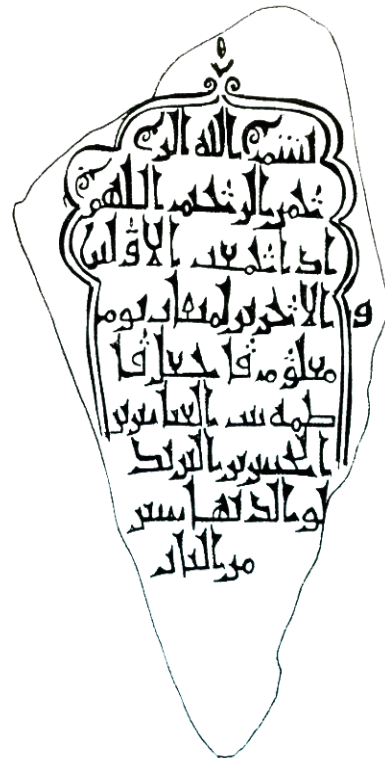 بسم الله الر
حمن الرحيم اللهم
اذا جمعت الاولين
والاخرين لميقات يوم
معلوم فاجعل فا
طمه بنت العباس بن
الحسين
من النار